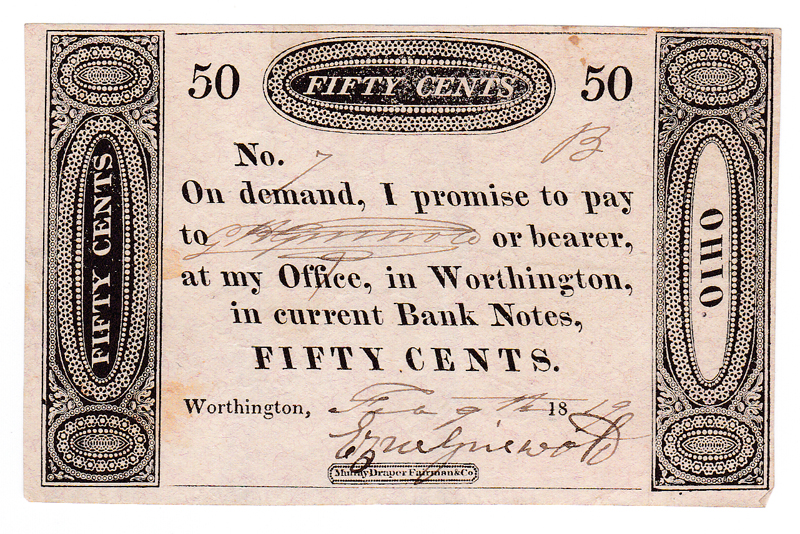 50 FIFTY CENTS 50
FIFTY CENTS
OHIO.
No. 7 B
On demand, I promise to pay
to Griswold or bearer,
at my Office, in Worthington,
in current Bank Notes,
FIFTY CENTS.
Worthington, 9th 1819
Ezra Griswold
Murray Draper Fairman & Co.